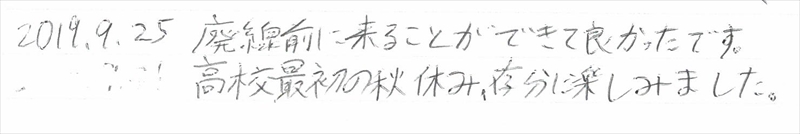 2019.9.25 廃線前に来ることができて良かったです。
高校最初の秋休み、存分に楽しみました。